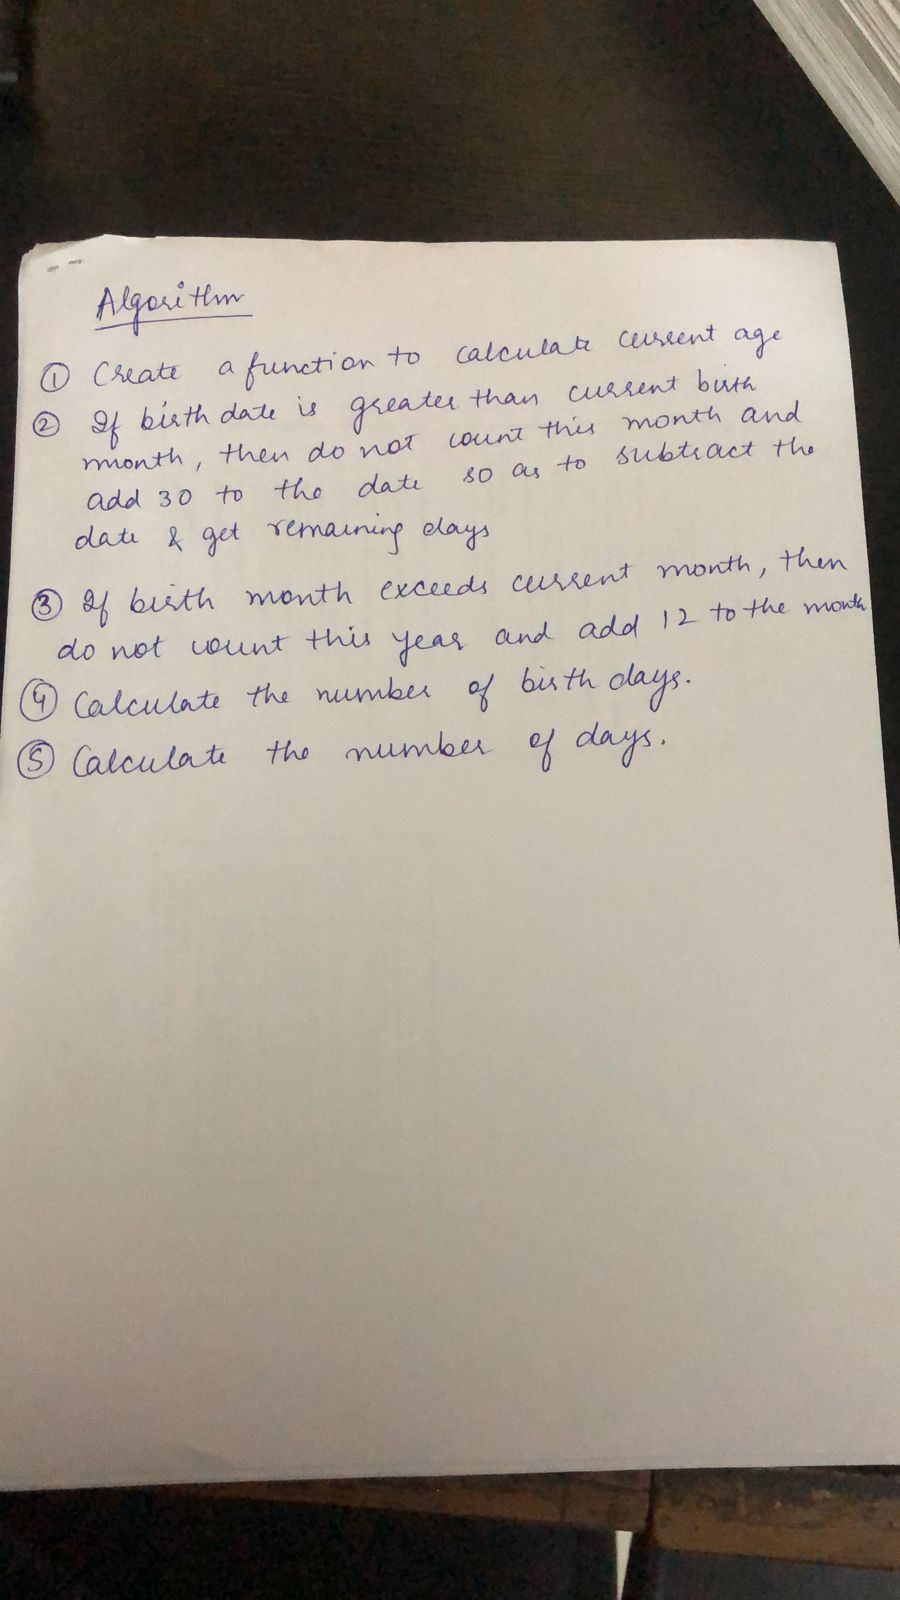 Algorithm
① Create a function to calculate current age
② If birth date is greater than current birth
month, then do not count this month and
add 30 to the date so as to subtract the
date & get remaining days
③ If birth month exceeds current month, then
do not count this year and add 12 to the month
④ Calculate the number of birth days.
⑤ Calculate the number of days.